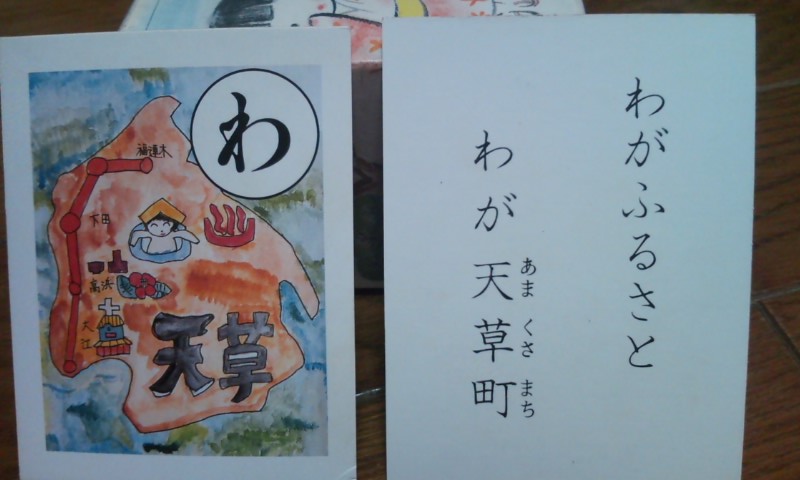 わ
福連木
下田
高浜
大江
天草
わがふるさと
わが天草町
あま くさ まち